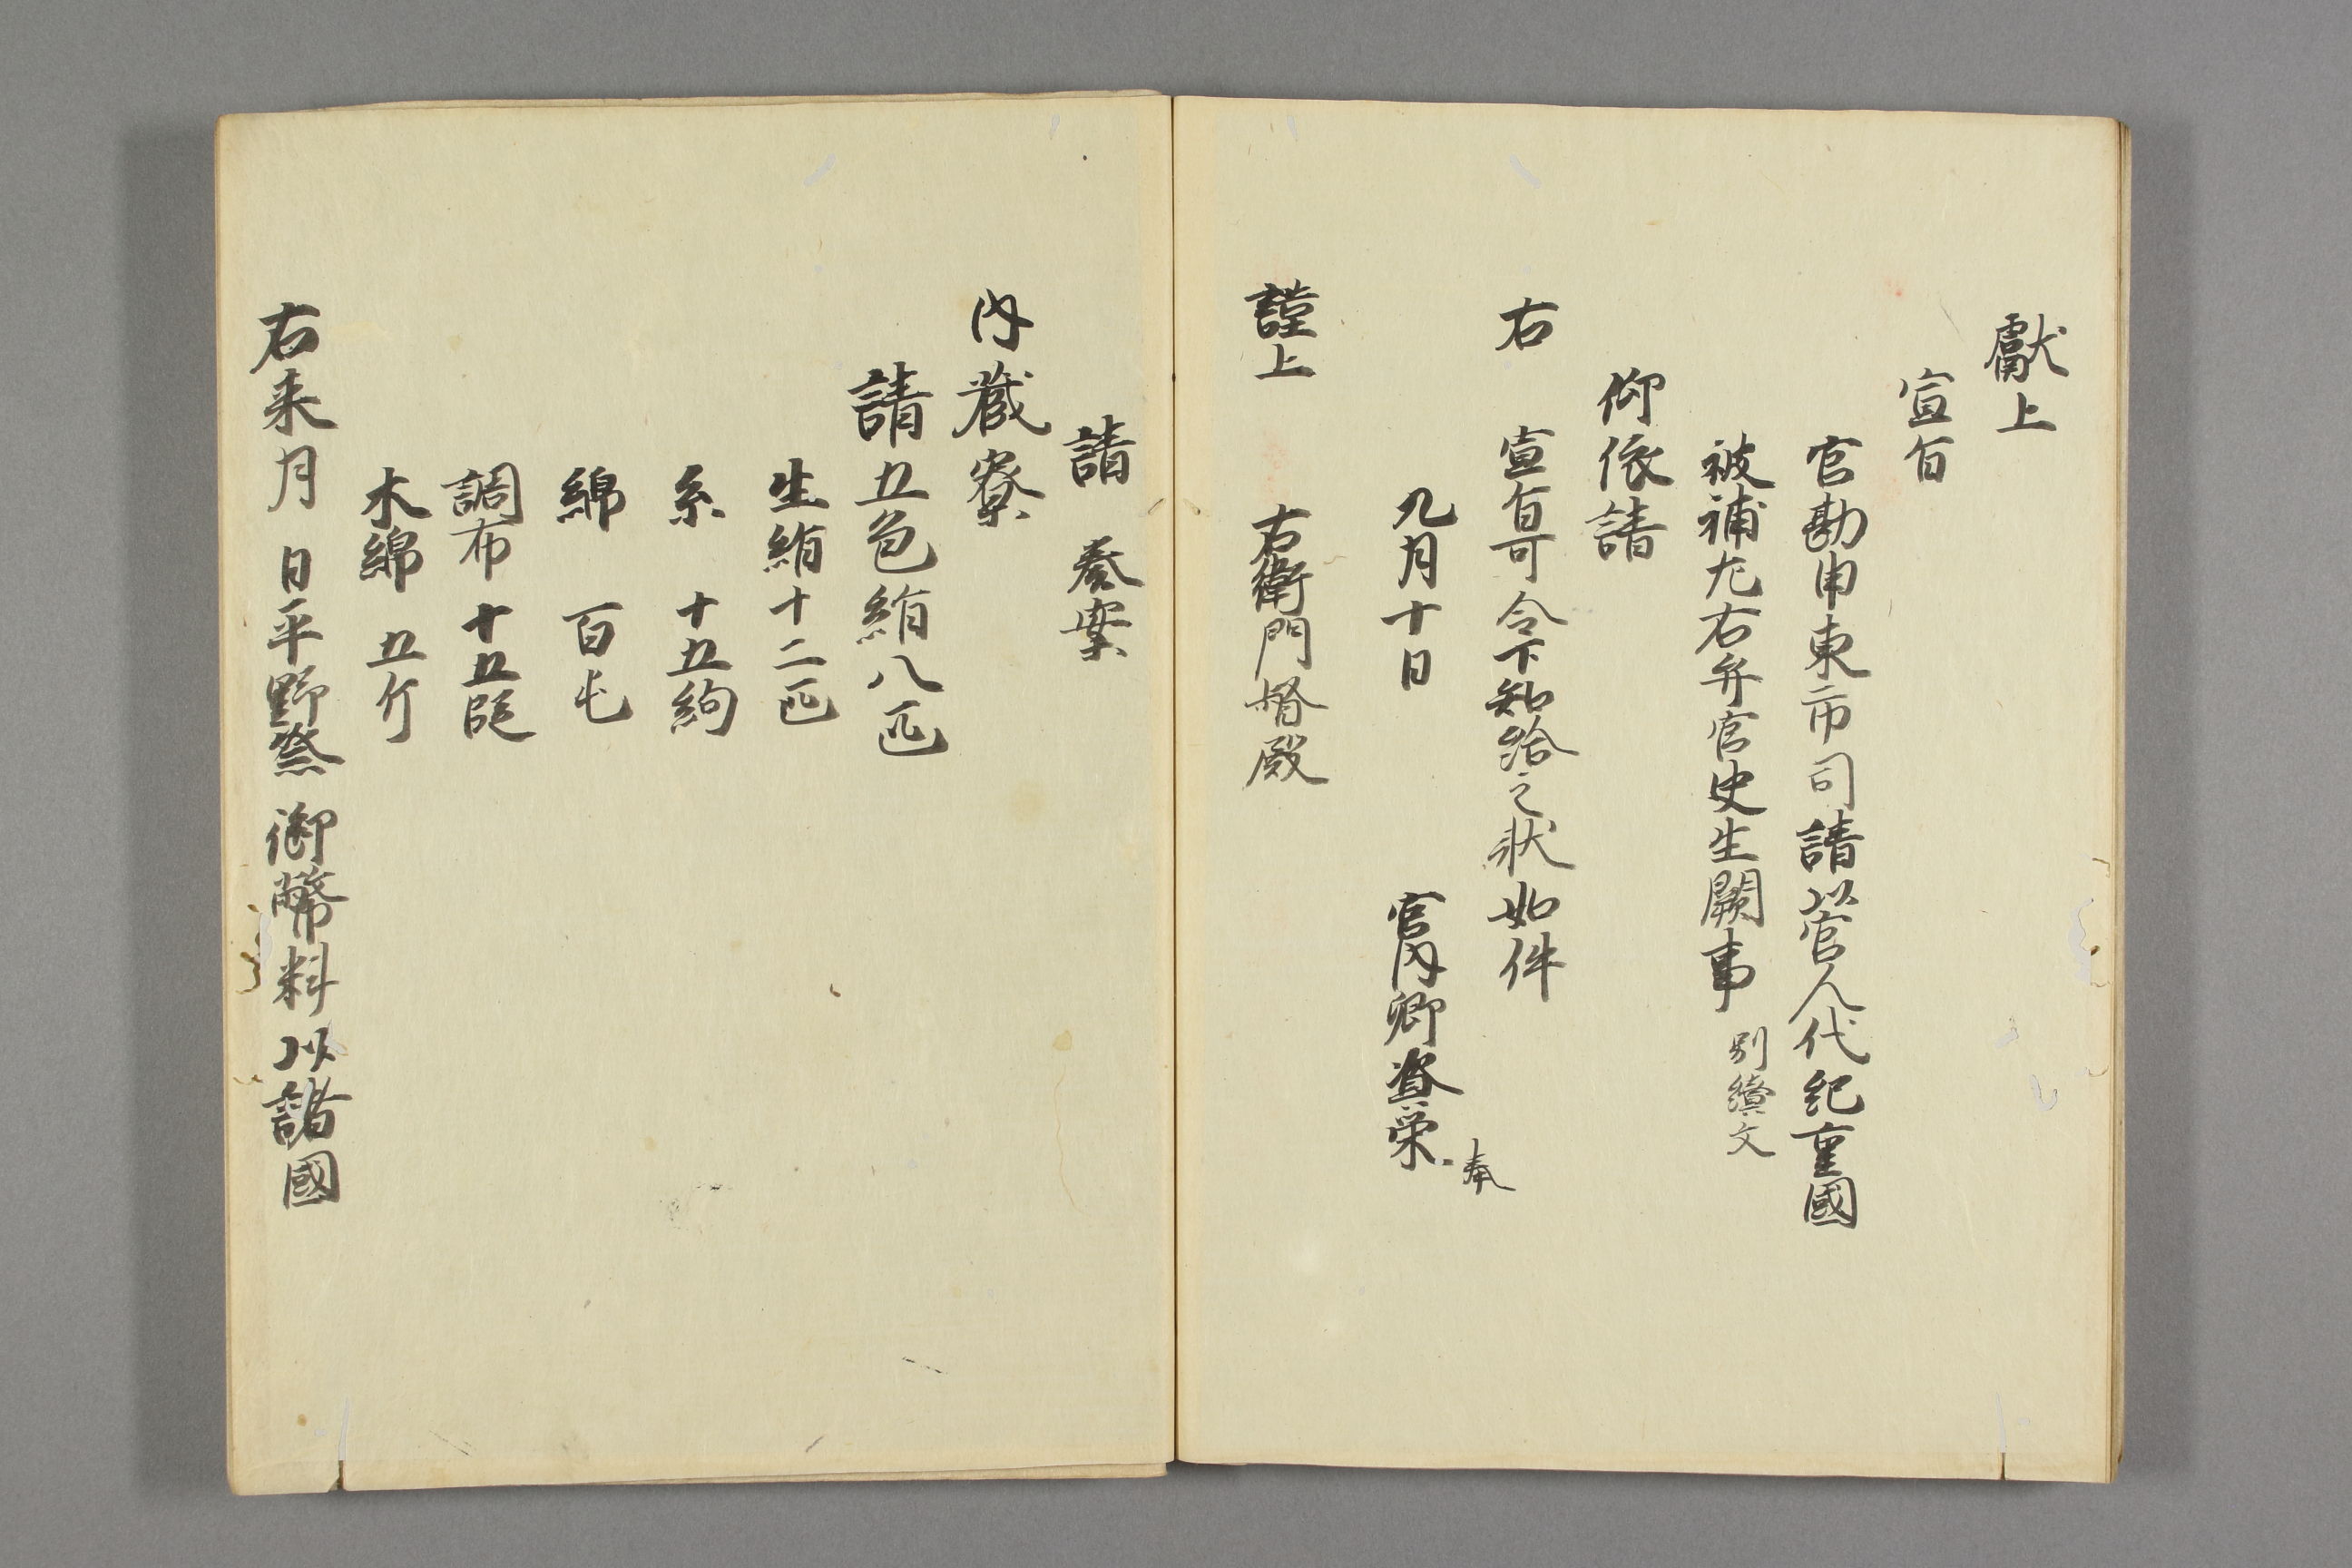 獻上
宣旨
官勘申東市司請以官人代紀重國
被補左右弁官史生闕事 別續文
仰依請
右 宣旨可令下知給之状如件
九月十日 宮内卿資栄 奉
謹上 右衛門督殿
請 奏案
内蔵寮
請五色絹八疋
生絹十二疋
糸 十五絇
綿 百屯
調布 十五段
木綿 五斤
右来月 日平野祭 御幣料以諸國